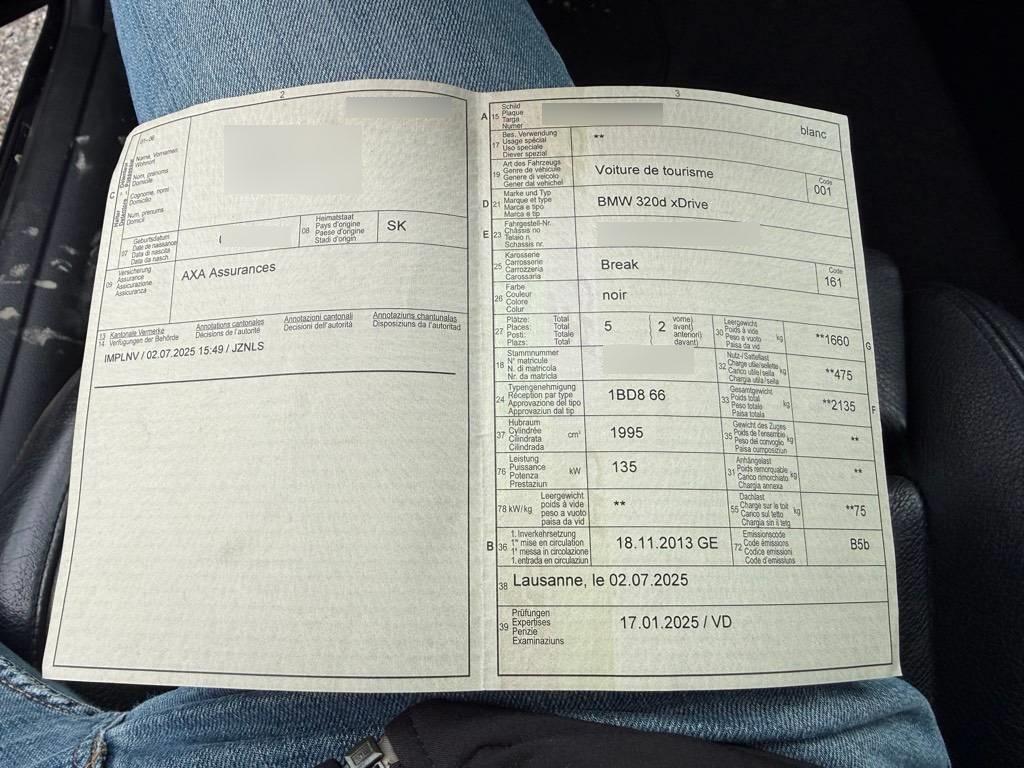 2
C
01-06
Name, Vornamen
Wohnort
Nom, prénoms
Domicile
Cognome, nomi
Domicilio
Num, prenums
Domicil
07
Geburtsdatum
Date de naissance
Data di nascita
Data da nasch.
08
Heimatstaat
Pays d'origine
Paese d'origine
Stadi d'origin
SK
09
Versicherung
Assurance
Assicurazione
Assicuranza
AXA Assurances
13 Kantonale Vermerke
14 Verfügungen der Behörde
Annotations cantonales
Décisions de l'autorité
Annotazioni cantonali
Decisioni dell'autorità
Annotaziuns chantunalas
Disposiziuns da l'autoritad
IMPLNV / 02.07.2025 15:49 / JZNLS
3
A 15
Schild
Plaque
Targa
Numer
blanc
17
Bes. Verwendung
Usage spécial
Uso speciale
Diever spezial
**
19
Art des Fahrzeugs
Genre de véhicule
Genere di veicolo
Gener dal vehichel
Voiture de tourisme
Code
001
D 21
Marke und Typ
Marque et type
Marca e tipo
Marca e tip
BMW 320d xDrive
E 23
Fahrgestell-Nr.
Châssis no
Telaio n.
Schassis nr.
25
Karosserie
Carrosserie
Carrozzeria
Carossaria
Break
Code
161
26
Farbe
Couleur
Colore
Colur
noir
27
Plätze: Total
Places: Total
Posti: Totale
Plazs: Total
5
2
vorne)
avant)
anteriori)
davant)
30
Leergewicht
Poids à vide
Peso a vuoto
Paisa da vid
kg
**1660
G
18
Stammnummer
N° matricule
N. di matricola
Nr. da matricla
32
Nutz-/Sattellast
Charge utile/sellette
Carico utile/sella
Chargia utila/sella
kg
**475
24
Typengenehmigung
Réception par type
Approvazione del tipo
Approvaziun dal tip
1BD8 66
33
Gesamtgewicht
Poids total
Peso totale
Paisa totala
kg
**2135
F
37
Hubraum
Cylindrée
Cilindrata
Cilindrada
cm³
1995
35
Gewicht des Zuges
Poids de l'ensemble
Peso del convoglio
Paisa cumposiziun
kg
**
76
Leistung
Puissance
Potenza
Prestaziun
kW
135
31
Anhängelast
Poids remorquable
Carico rimorchiato
Chargia annexa
kg
**
78 kW/kg
Leergewicht
poids à vide
peso a vuoto
paisa da vid
**
55
Dachlast
Charge sur le toit
Carico sul tetto
Chargia sin il tetg
kg
**75
B 36
1. Inverkehrsetzung
1re mise en circulation
1a messa in circolazione
1. entrada en circulaziun
18.11.2013 GE
72
Emissionscode
Code émissions
Codice emissioni
Code d'emissiuns
B5b
38
Lausanne, le 02.07.2025
39
Prüfungen
Expertises
Perizie
Examinaziuns
17.01.2025 / VD